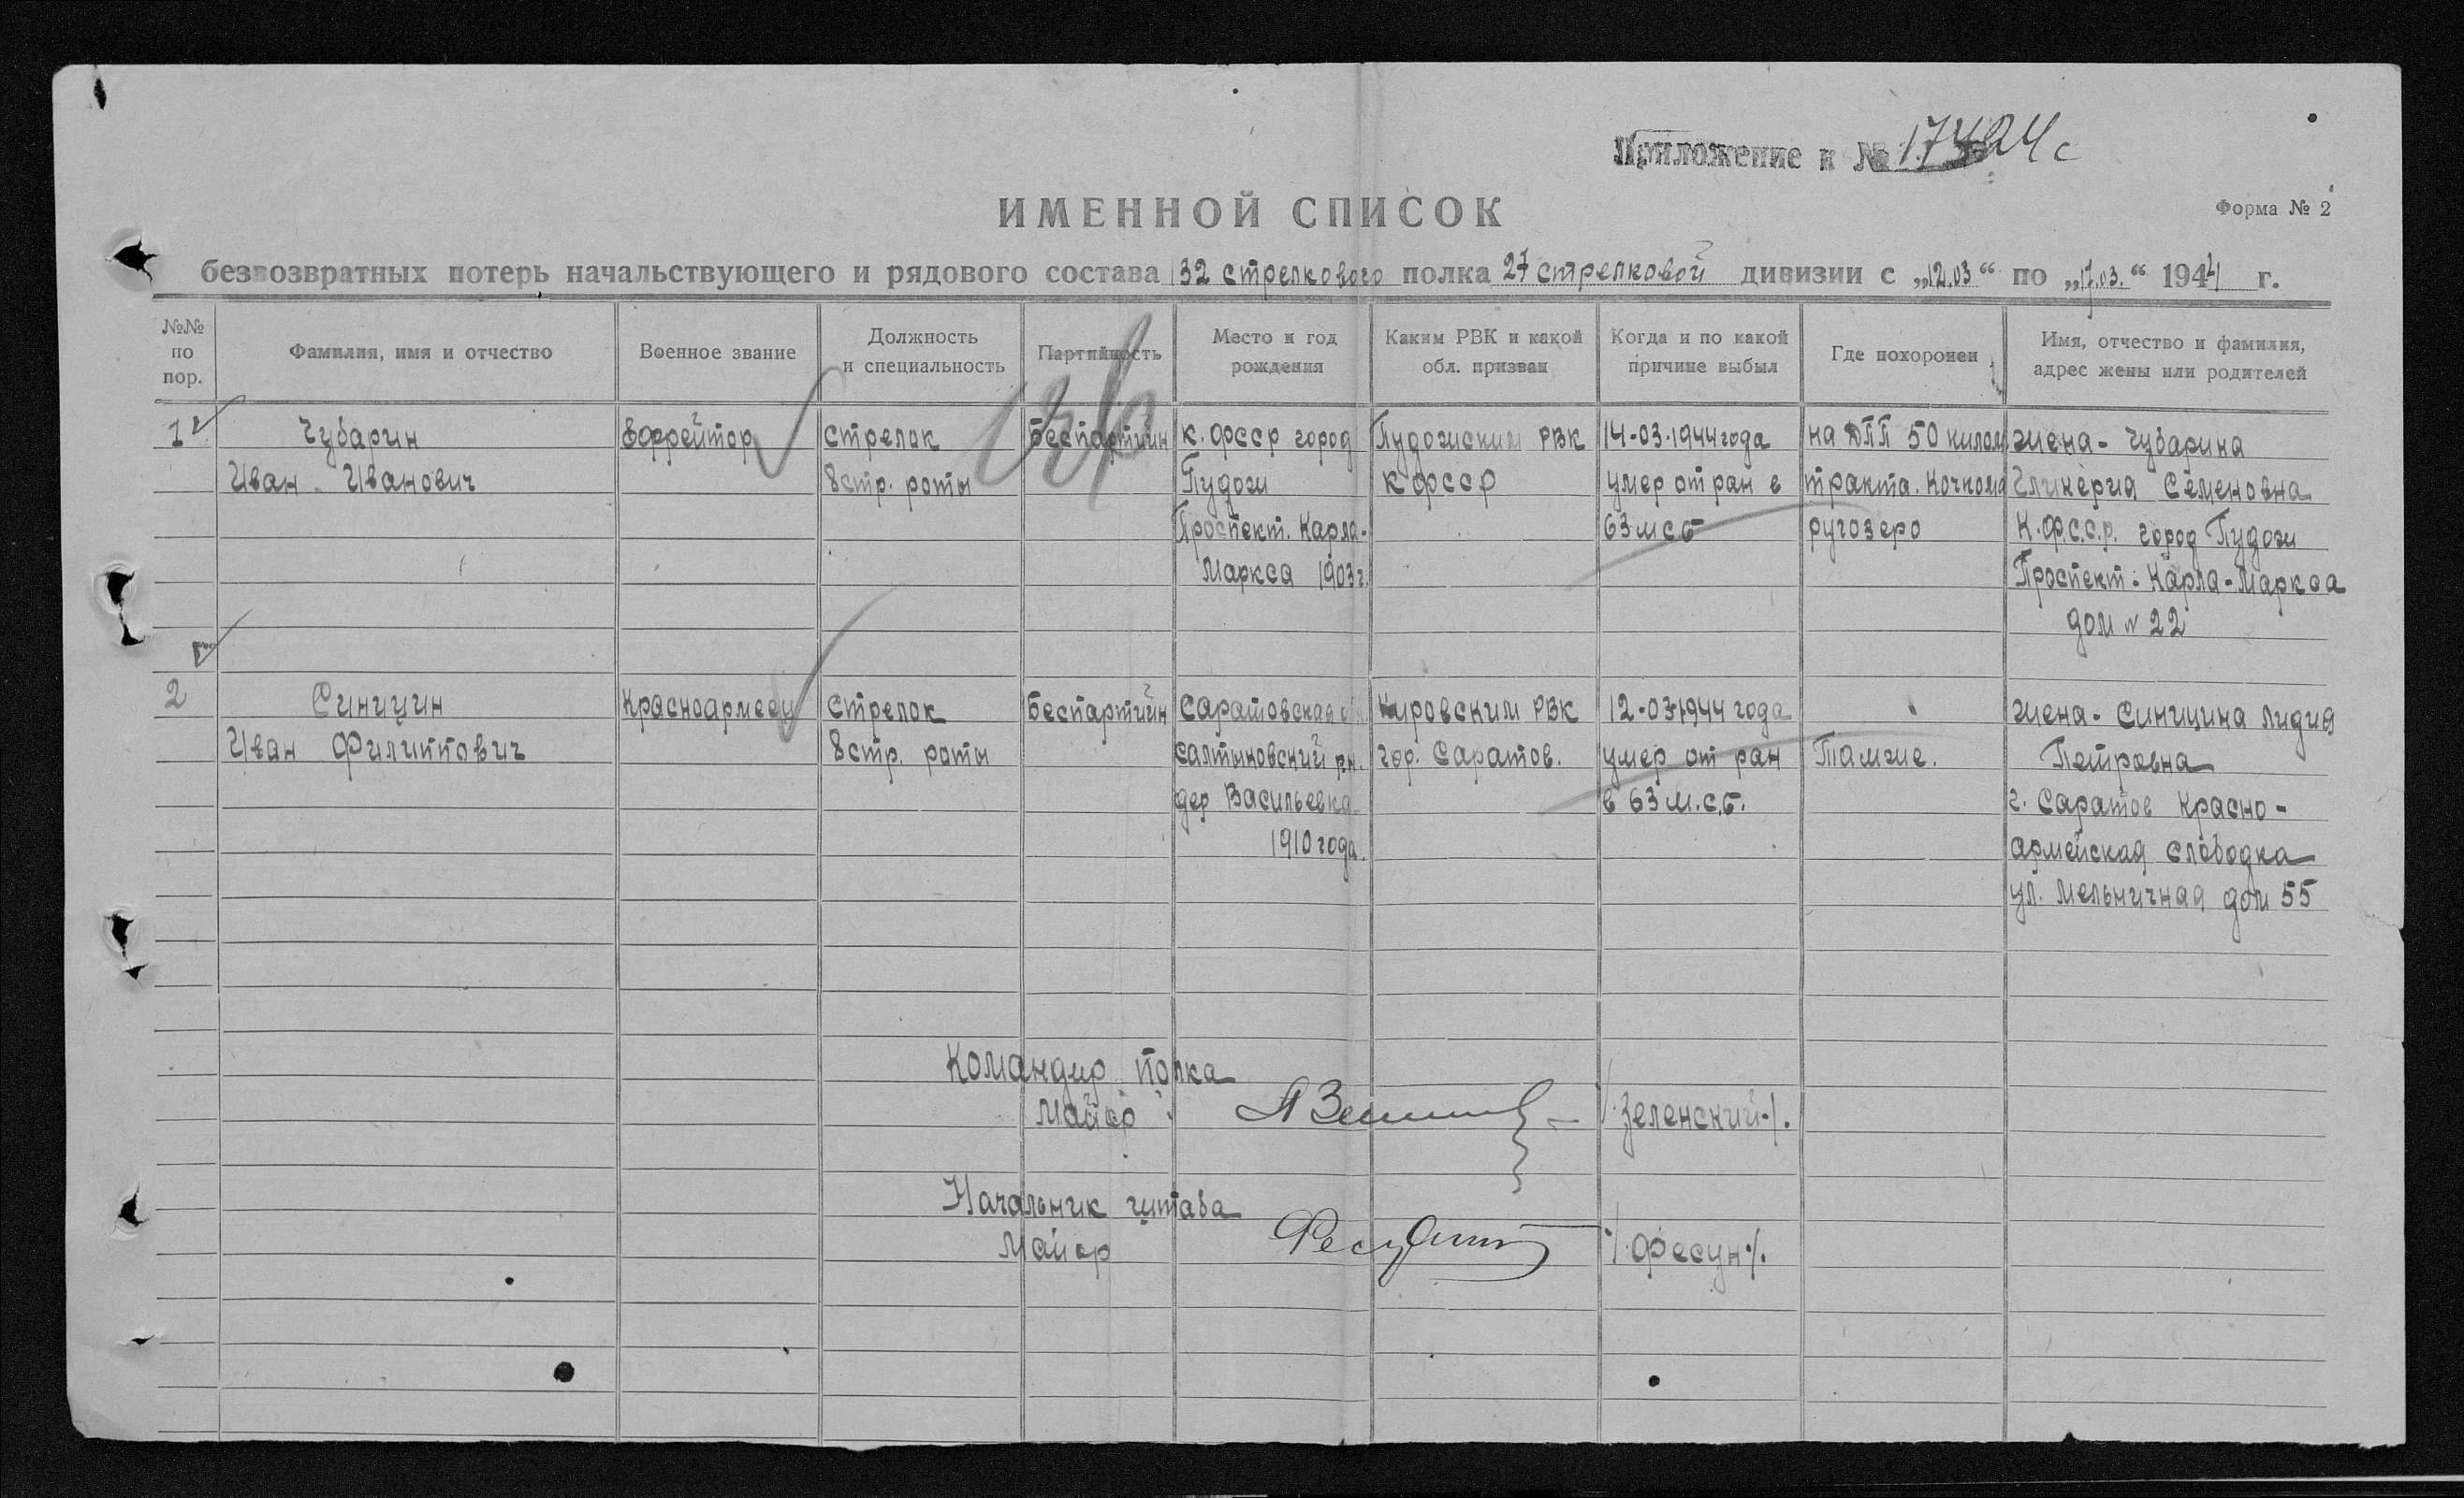 Приложение к № 17424с
Форма № 2
ИМЕННОЙ СПИСОК
безвозвратных потерь начальствующего и рядового состава 132 стрелкового полка 27 стрелковой дивизии с „12.03“ по „17.03.“ 1944 г.
№№ по пор.
Фамилия, имя и отчество
Военное звание
Должность и специальность
Партийность
Место и год рождения
Каким РВК и какой обл. призван
Когда и по какой причине выбыл
Где похоронен
Имя, отчество и фамилия, адрес жены или родителей
1 Чубарин Ефрейтор стрелок Беспартийн к.фсср город Пудожским РВК 14-03-1944 года на ДПП 50 килом жена - Чубарина
Иван Иванович 8 стр. роты Пудож кфсср умер от ран в тракта. Кочкома Гликерия Семеновна
Проспект. Карла- 63 мсб ругозеро К.Ф.С.С.Р. город Пудож
Маркса 1903 г. Проспект - Карла-Маркса
дом № 22
2 Синицин Красноармеец стрелок Беспартийн Саратовская обл Кировским РВК 12-03-1944 года жена - Синицина Лидия
Иван Филиппович 8 стр. роты салтыковский рн. гор. Саратов. умер от ран Тамже. Петровна
дер Васильевка в 63 м.с.б. г. Саратов Красно-
1910 года. армейская слободка
ул. Мельничная дом 55
Командир полка
Майор /Зеленский/.
Начальник штаба
Майор /Фесун/.